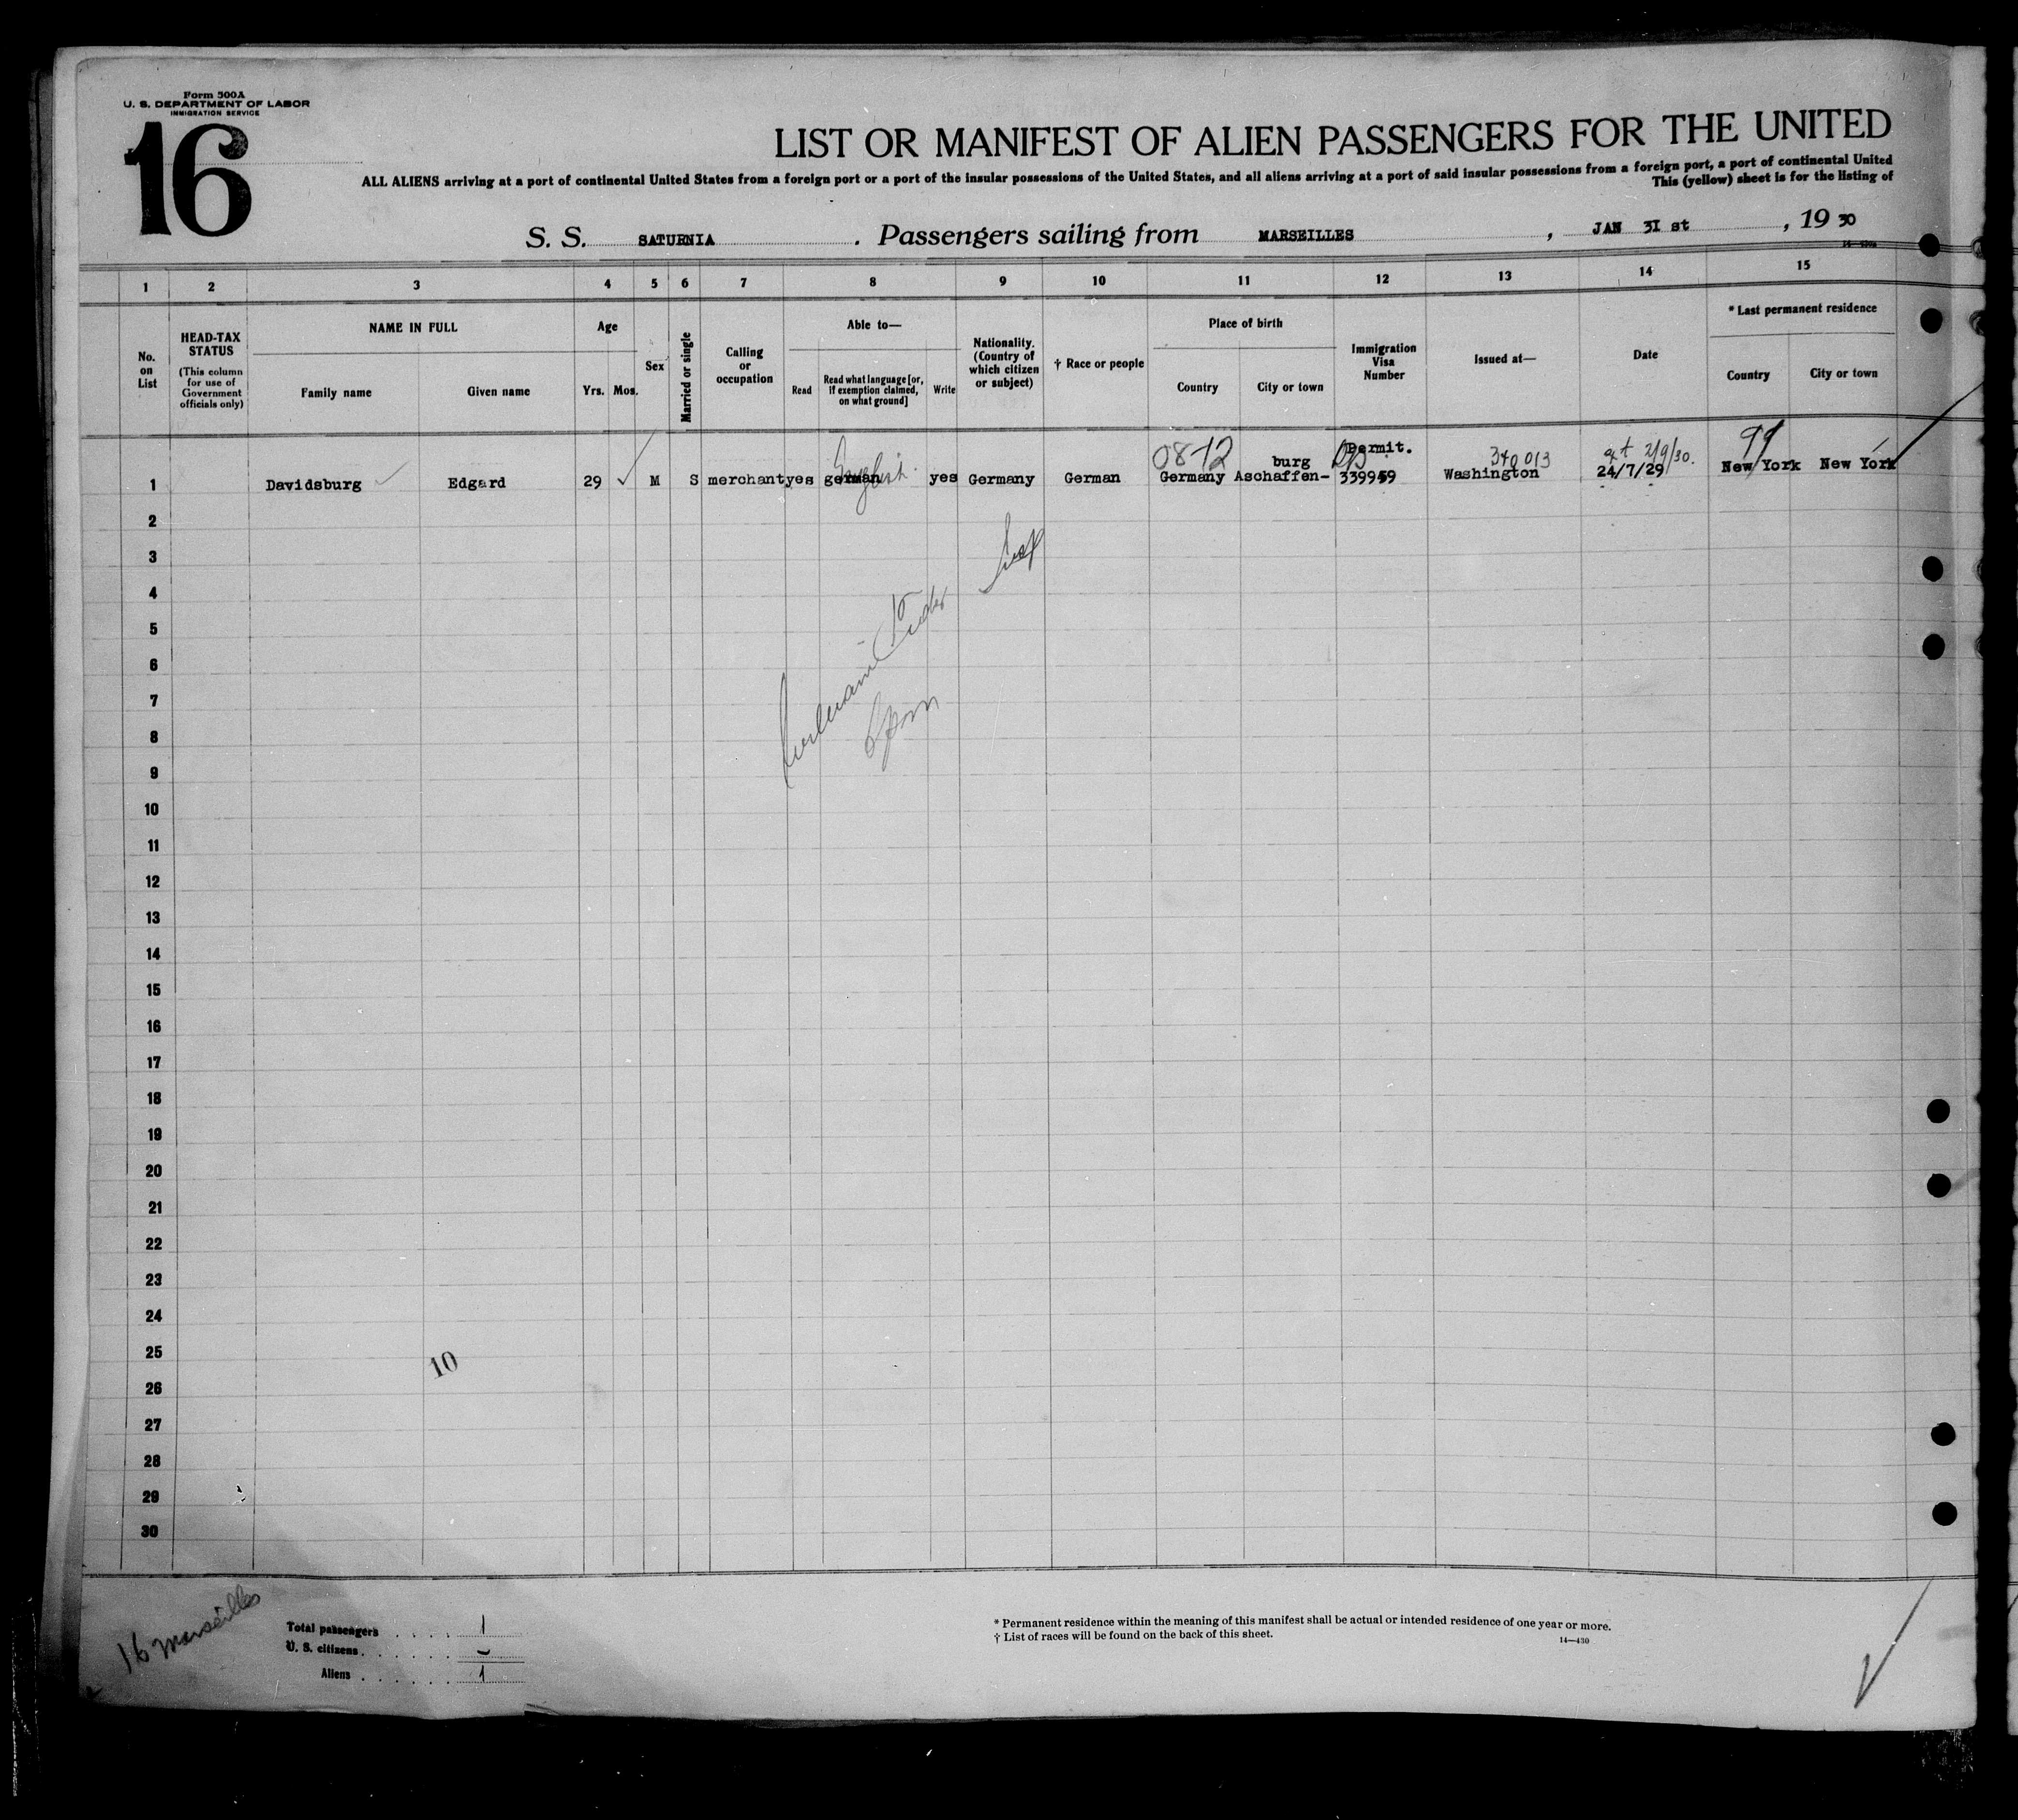 Form 500A
U. S. DEPARTMENT OF LABOR
IMMIGRATION SERVICE
16
LIST OR MANIFEST OF ALIEN PASSENGERS FOR THE UNITED
ALL ALIENS arriving at a port of continental United States from a foreign port or a port of the insular possessions of the United States, and all aliens arriving at a port of said insular possessions from a foreign port, a port of continental United
This (yellow) sheet is for the listing of
S. S. SATURNIA . Passengers sailing from MARSEILLES , JAN 31 st , 19 30
1 2 3 4 5 6 7 8 9 10 11 12 13 14 15
No. on List
HEAD-TAX STATUS (This column for use of Government officials only)
NAME IN FULL
Family name Given name
Age
Yrs. Mos.
Sex
Married or single
Calling or occupation
Able to—
Read Read what language [or, if exemption claimed, on what ground] Write
Nationality. (Country of which citizen or subject)
† Race or people
Place of birth
Country City or town
Immigration Visa Number
Issued at—
Date
* Last permanent residence
Country City or town
English 0872 burg Permit. 340013 2/9/30. 99
1 Davidsburg Edgard 29 M S merchant yes german yes Germany German Germany Aschaffen- 339959 Washington 24/7/29 New York New York
2
3
4
5
6
7
8
9
10
11
12
13
14
15
16
17
18
19
20
21
22
23
24
25
10
26
27
28
29
30
16 Marseilles
Total passengers 1
U. S. citizens
Aliens 1
* Permanent residence within the meaning of this manifest shall be actual or intended residence of one year or more.
† List of races will be found on the back of this sheet.
14—430